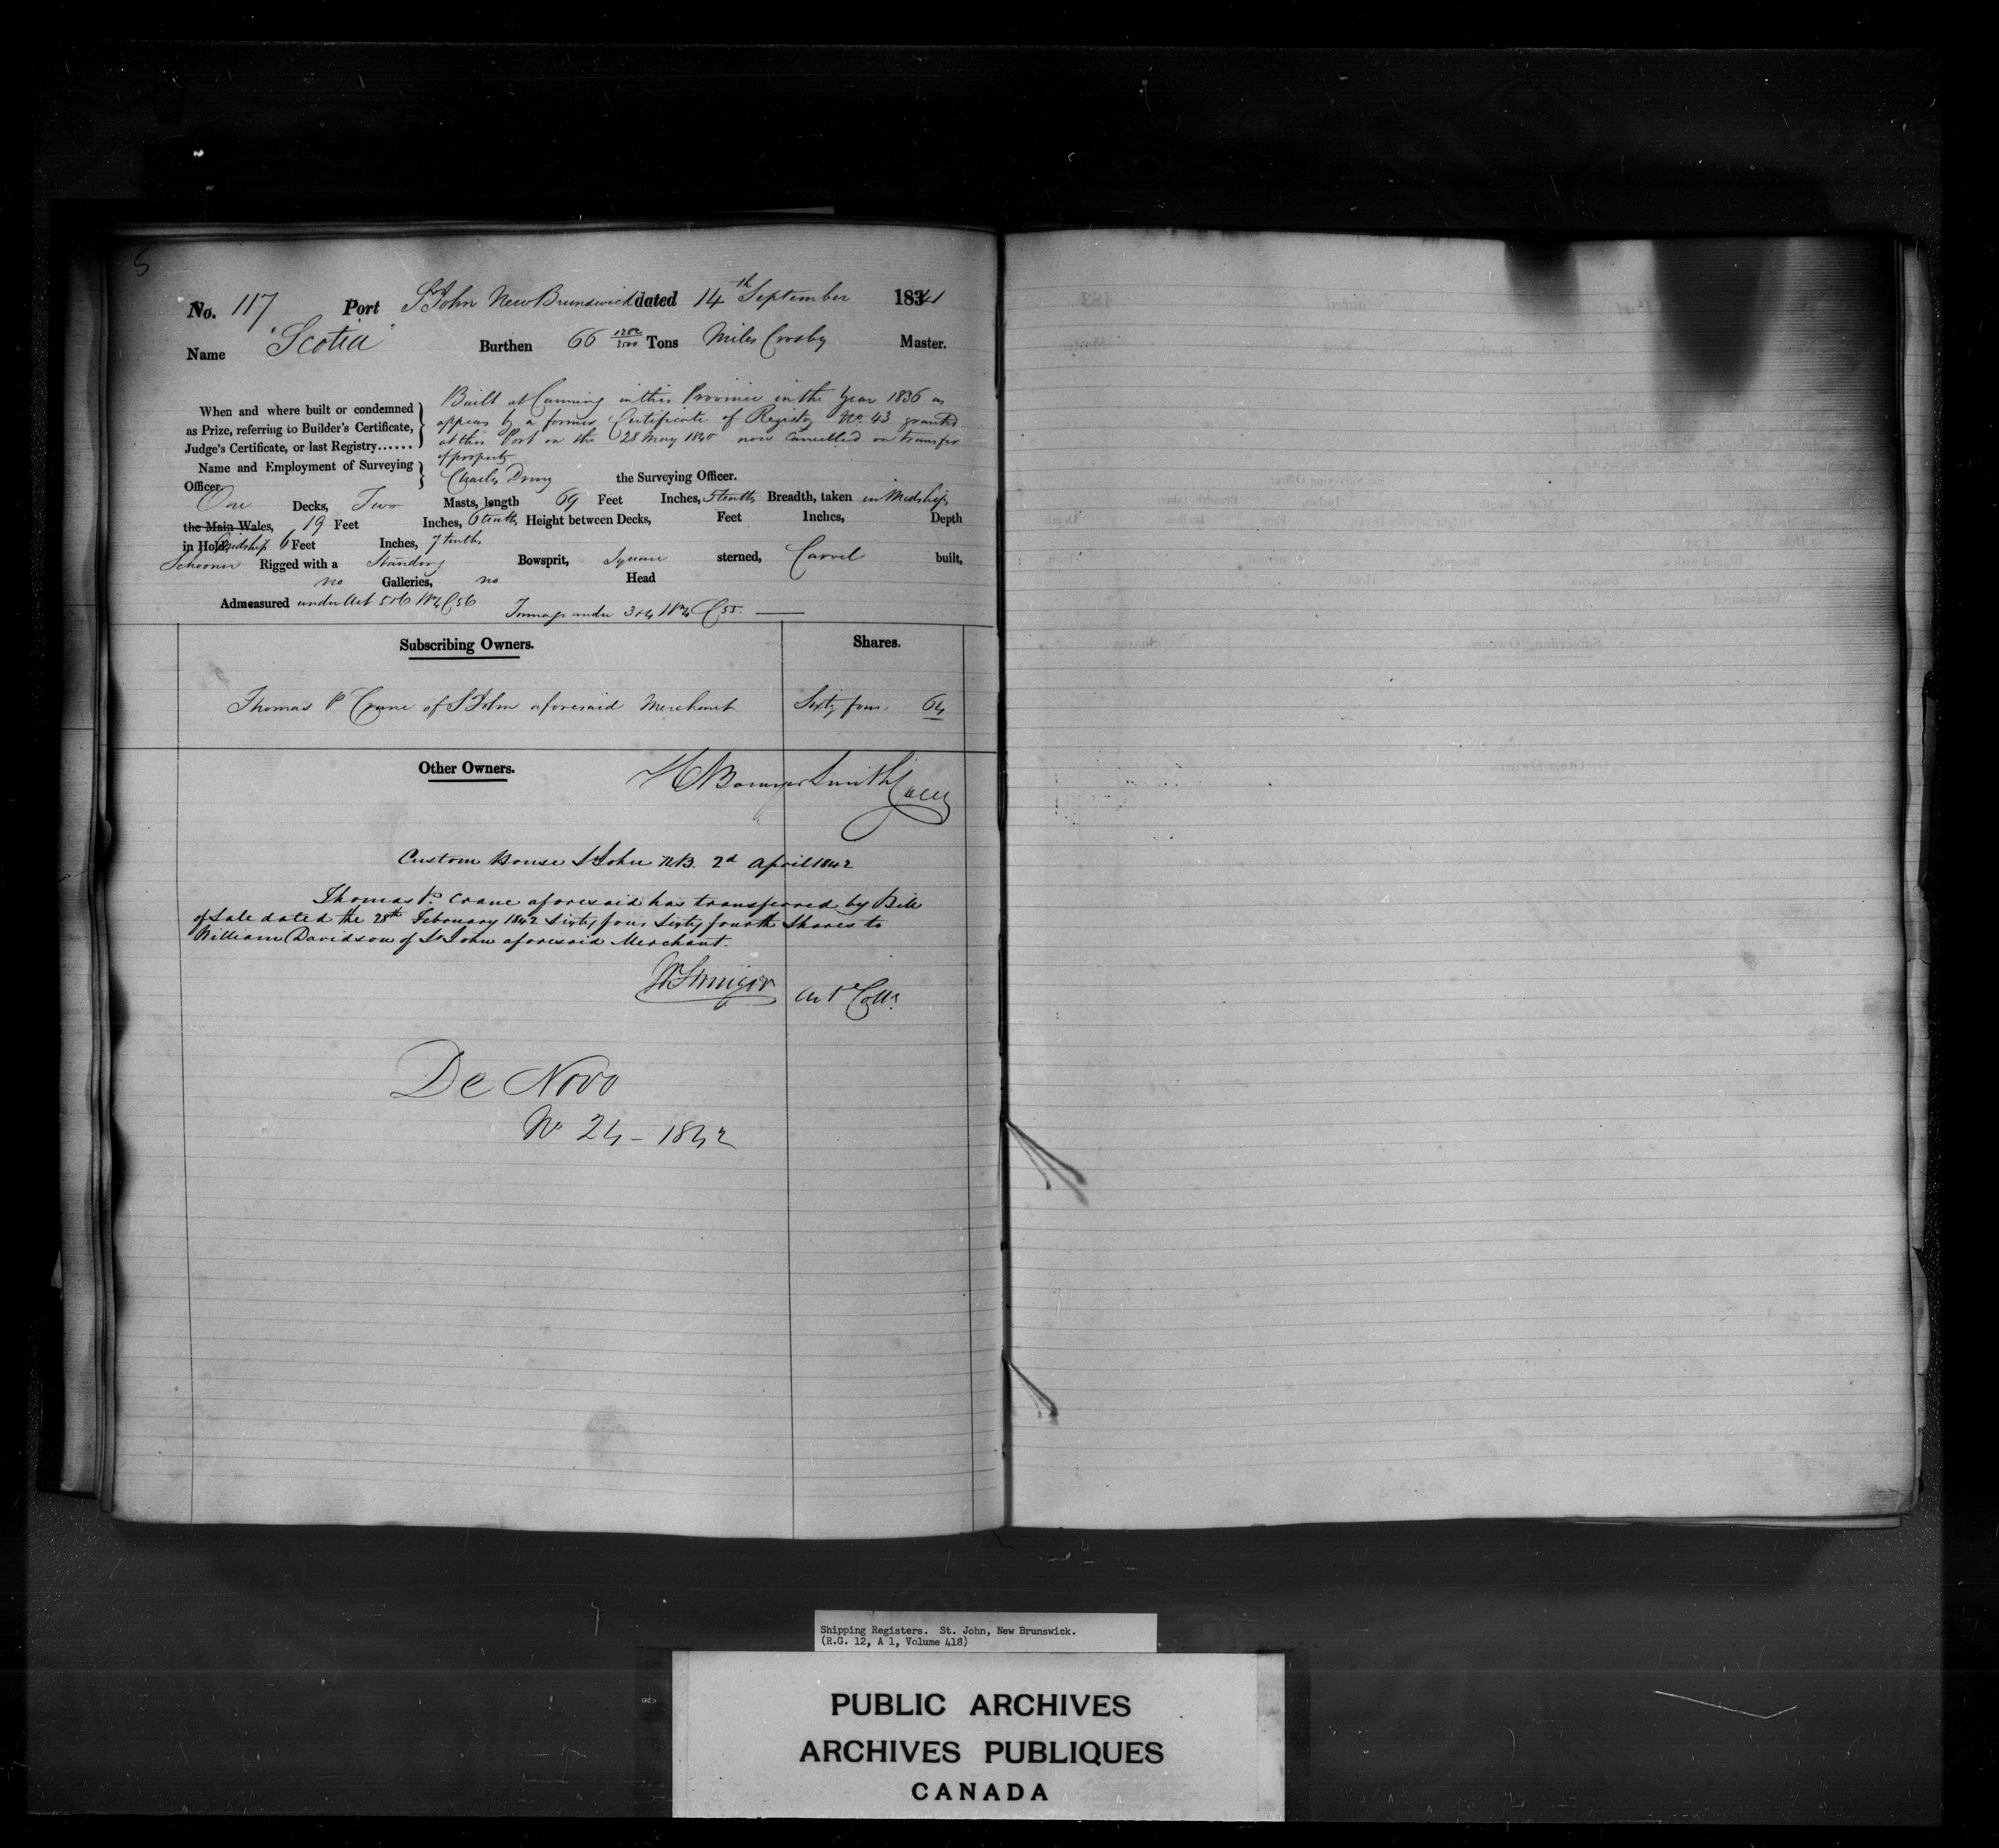 5
No. 117 Port St John New Brunswick dated 14th September 1841
Name "Scotia" Burthen 66 Tons Miles Crosby Master.
When and where built or condemned as Prize, referring to Builder's Certificate, Judge's Certificate, or last Registry......
Built at Canning in this Province in the Year 1836 as
appears by a former Certificate of Registry No. 43 granted
at this Port on the 28 May 1840 now Cancelled on transfer
of property
Name and Employment of Surveying Officer. Charles Drury the Surveying Officer.
One Decks, Two Masts, length 69 Feet Inches, 5 tenths Breadth, taken in Midships
the Main Wales, 19 Feet Inches, 6 tenths Height between Decks, Feet Inches, Depth
in Hold, Midships 6 Feet Inches, 7 tenths
Schooner Rigged with a Standing Bowsprit, Square sterned, Carvel built,
no Galleries, no Head
Admeasured under Act 5 & 6 Wm 4 C 56 Tonnage under 3 & 4 Wm 4 C 55.
Subscribing Owners. Shares.
Thomas P Crane of St John aforesaid Merchant Sixty four. 64
Other Owners.
H Bowyer Smith
Custom House St John N.B. 2d April 1842
Thomas P. Crane aforesaid has transferred by Bill
of Sale dated the 28th February 1842 Sixty four Sixty fourth Shares to
William Davidson of St John aforesaid Merchant.
De Novo
No 24 - 1842
Shipping Registers. St. John, New Brunswick.
(R.G. 12, A 1, Volume 418)
PUBLIC ARCHIVES
ARCHIVES PUBLIQUES
CANADA